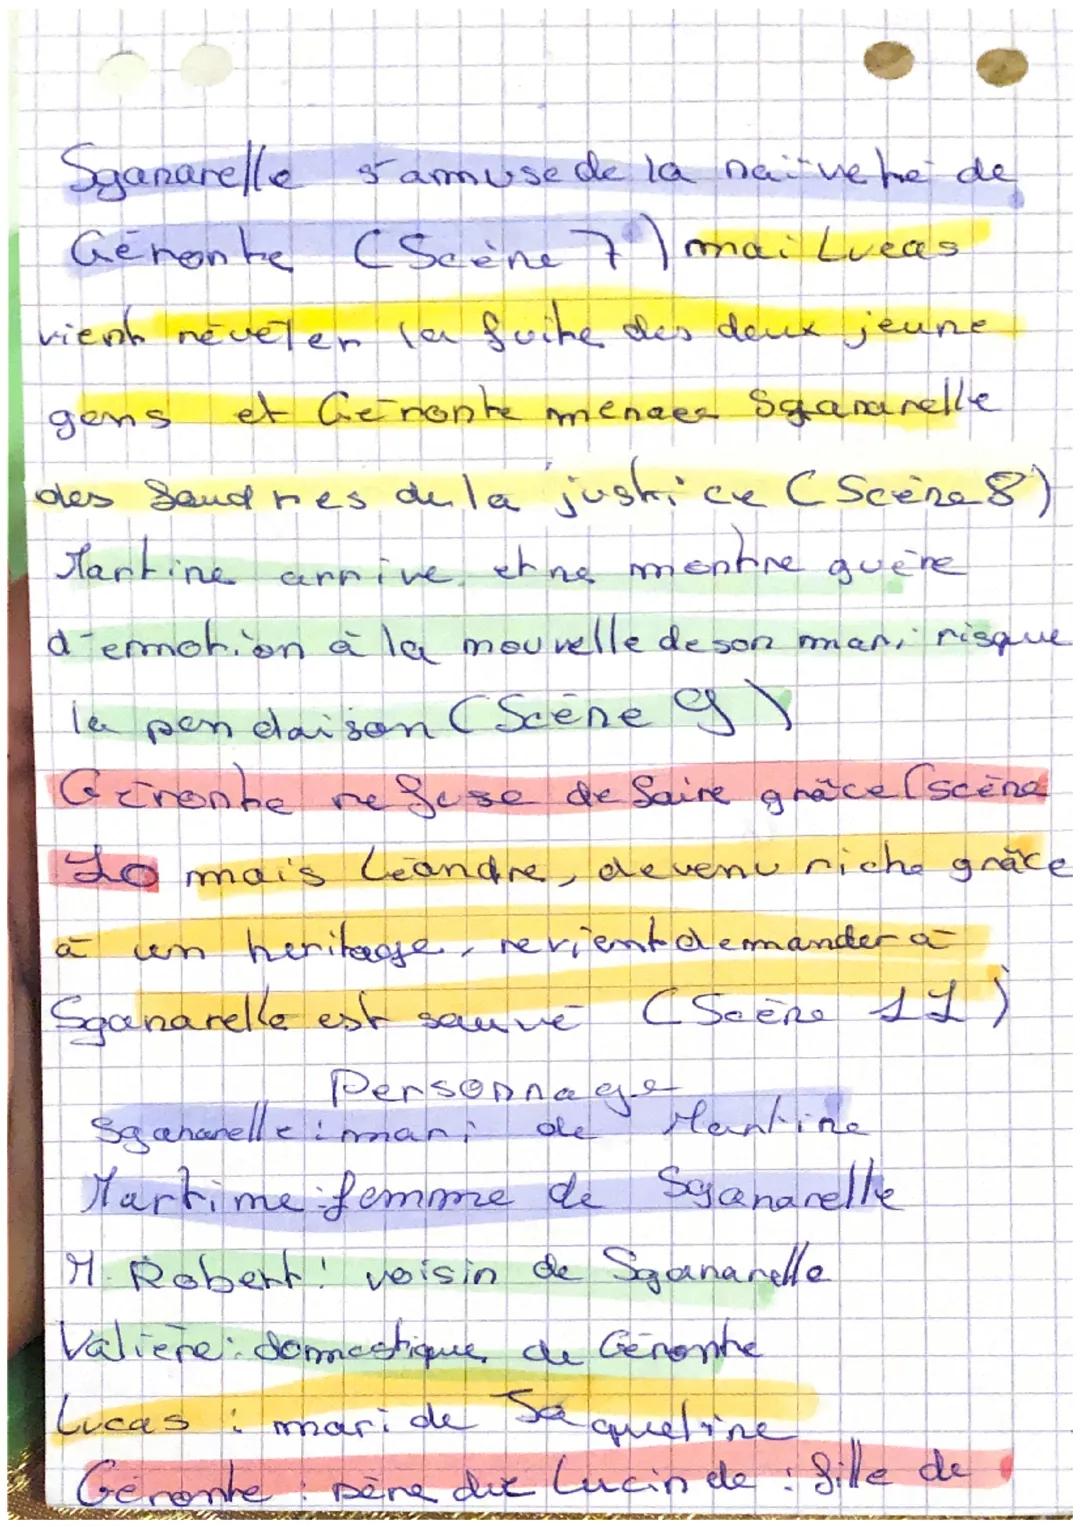 Sganarelle s'amuse de la naïveté de
Géronte (Scène 7) mai Lucas
vient révéler la fuite des deux jeune
gens et Géronte menace Sganarelle
des foudres de la justice (Scène 8)
Martine arrive et ne montre guère
d'émotion à la nouvelle de son mari risque
la pendaison (Scène 9)
Géronte refuse de faire grâce (scène
10 mais Léandre, devenu riche grâce
à un heritage, revient demander a
Sganarelle est sauvé (Scène 11)
Personnage
Sganarelle : mari de Martine
Martime : femme de Sganarelle
M. Robert : voisin de Sganarelle
Valière : domestique de Géronte
Lucas : mari de Jaqueline
Géronte : père de Lucinde : fille de